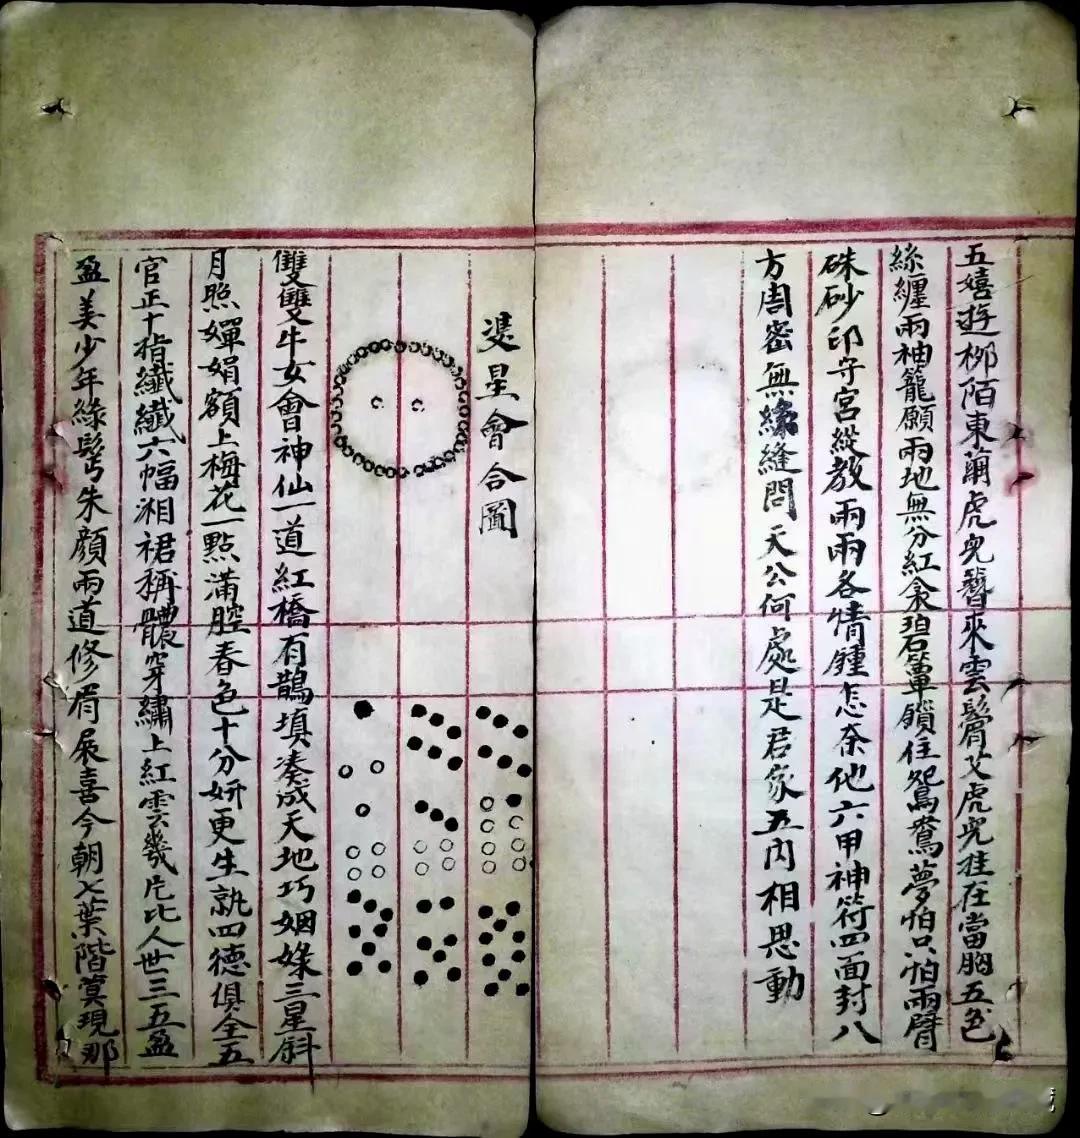 五嬉遊柳陌東蘭虎兒簪來雲鬢艾虎兒挂在當胸五色
絲纏兩袖籠願兩地無分紅衾碧簟鎖住鴛鴦夢怕只怕兩臂
硃砂印守宮縱教兩兩各情鍾怎奈他六甲神符四面封八
方周密無縫問天公何處是君家五內相思動
雙星會合圖
雙雙牛女會神仙一道紅橋有鵲填湊成天地巧姻緣三星斜
月照嬋娟額上梅花一點滿腔春色十分妍更生就四德俱全五
官正十指纖纖六幅湘裙稱體穿繡上紅雲幾片比人世三五盈
盈美少年綠鬢朱顏兩道修眉展喜今朝七葉階蓂現那